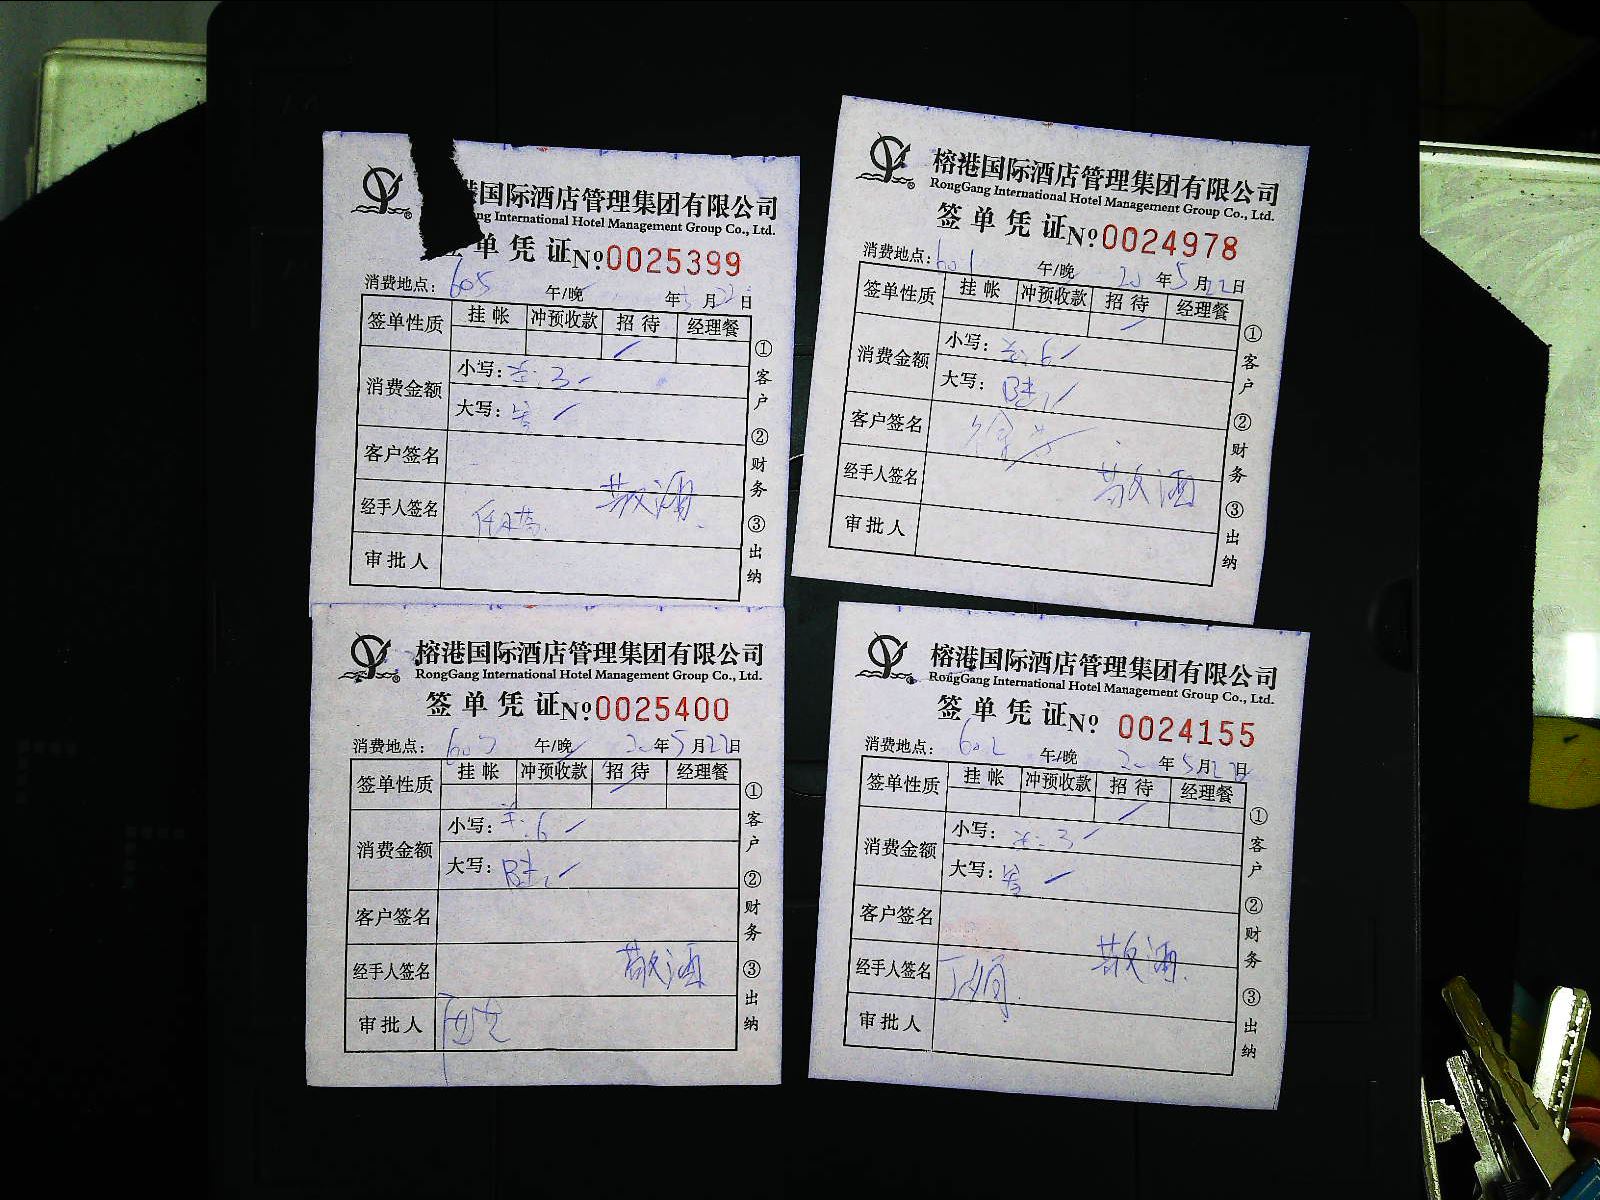 港国际酒店管理集团有限公司
ng International Hotel Management Group Co., Ltd.
单凭证 Nº 0025399
消费地点: 605 午/晚 年5月22日
签单性质 挂帐 冲预收款 招待 经理餐
消费金额 小写: 3
大写:
客户签名
敬酒
经手人签名
审批人
①客户 ②财务 ③出纳
榕港国际酒店管理集团有限公司
RongGang International Hotel Management Group Co., Ltd.
签单凭证 Nº 0024978
消费地点: 601 午/晚 20年5月22日
签单性质 挂帐 冲预收款 招待 经理餐
消费金额 小写: 6
大写:
客户签名
经手人签名 敬酒
审批人
①客户 ②财务 ③出纳
榕港国际酒店管理集团有限公司
RongGang International Hotel Management Group Co., Ltd.
签单凭证 Nº 0025400
消费地点: 午/晚 20年5月22日
签单性质 挂帐 冲预收款 招待 经理餐
消费金额 小写: 6
大写:
客户签名
经手人签名 敬酒
审批人
①客户 ②财务 ③出纳
榕港国际酒店管理集团有限公司
RongGang International Hotel Management Group Co., Ltd.
签单凭证 Nº 0024155
消费地点: 602 午/晚 年5月22日
签单性质 挂帐 冲预收款 招待 经理餐
消费金额 小写: 3
大写:
客户签名
经手人签名 敬酒
审批人
①客户 ②财务 ③出纳